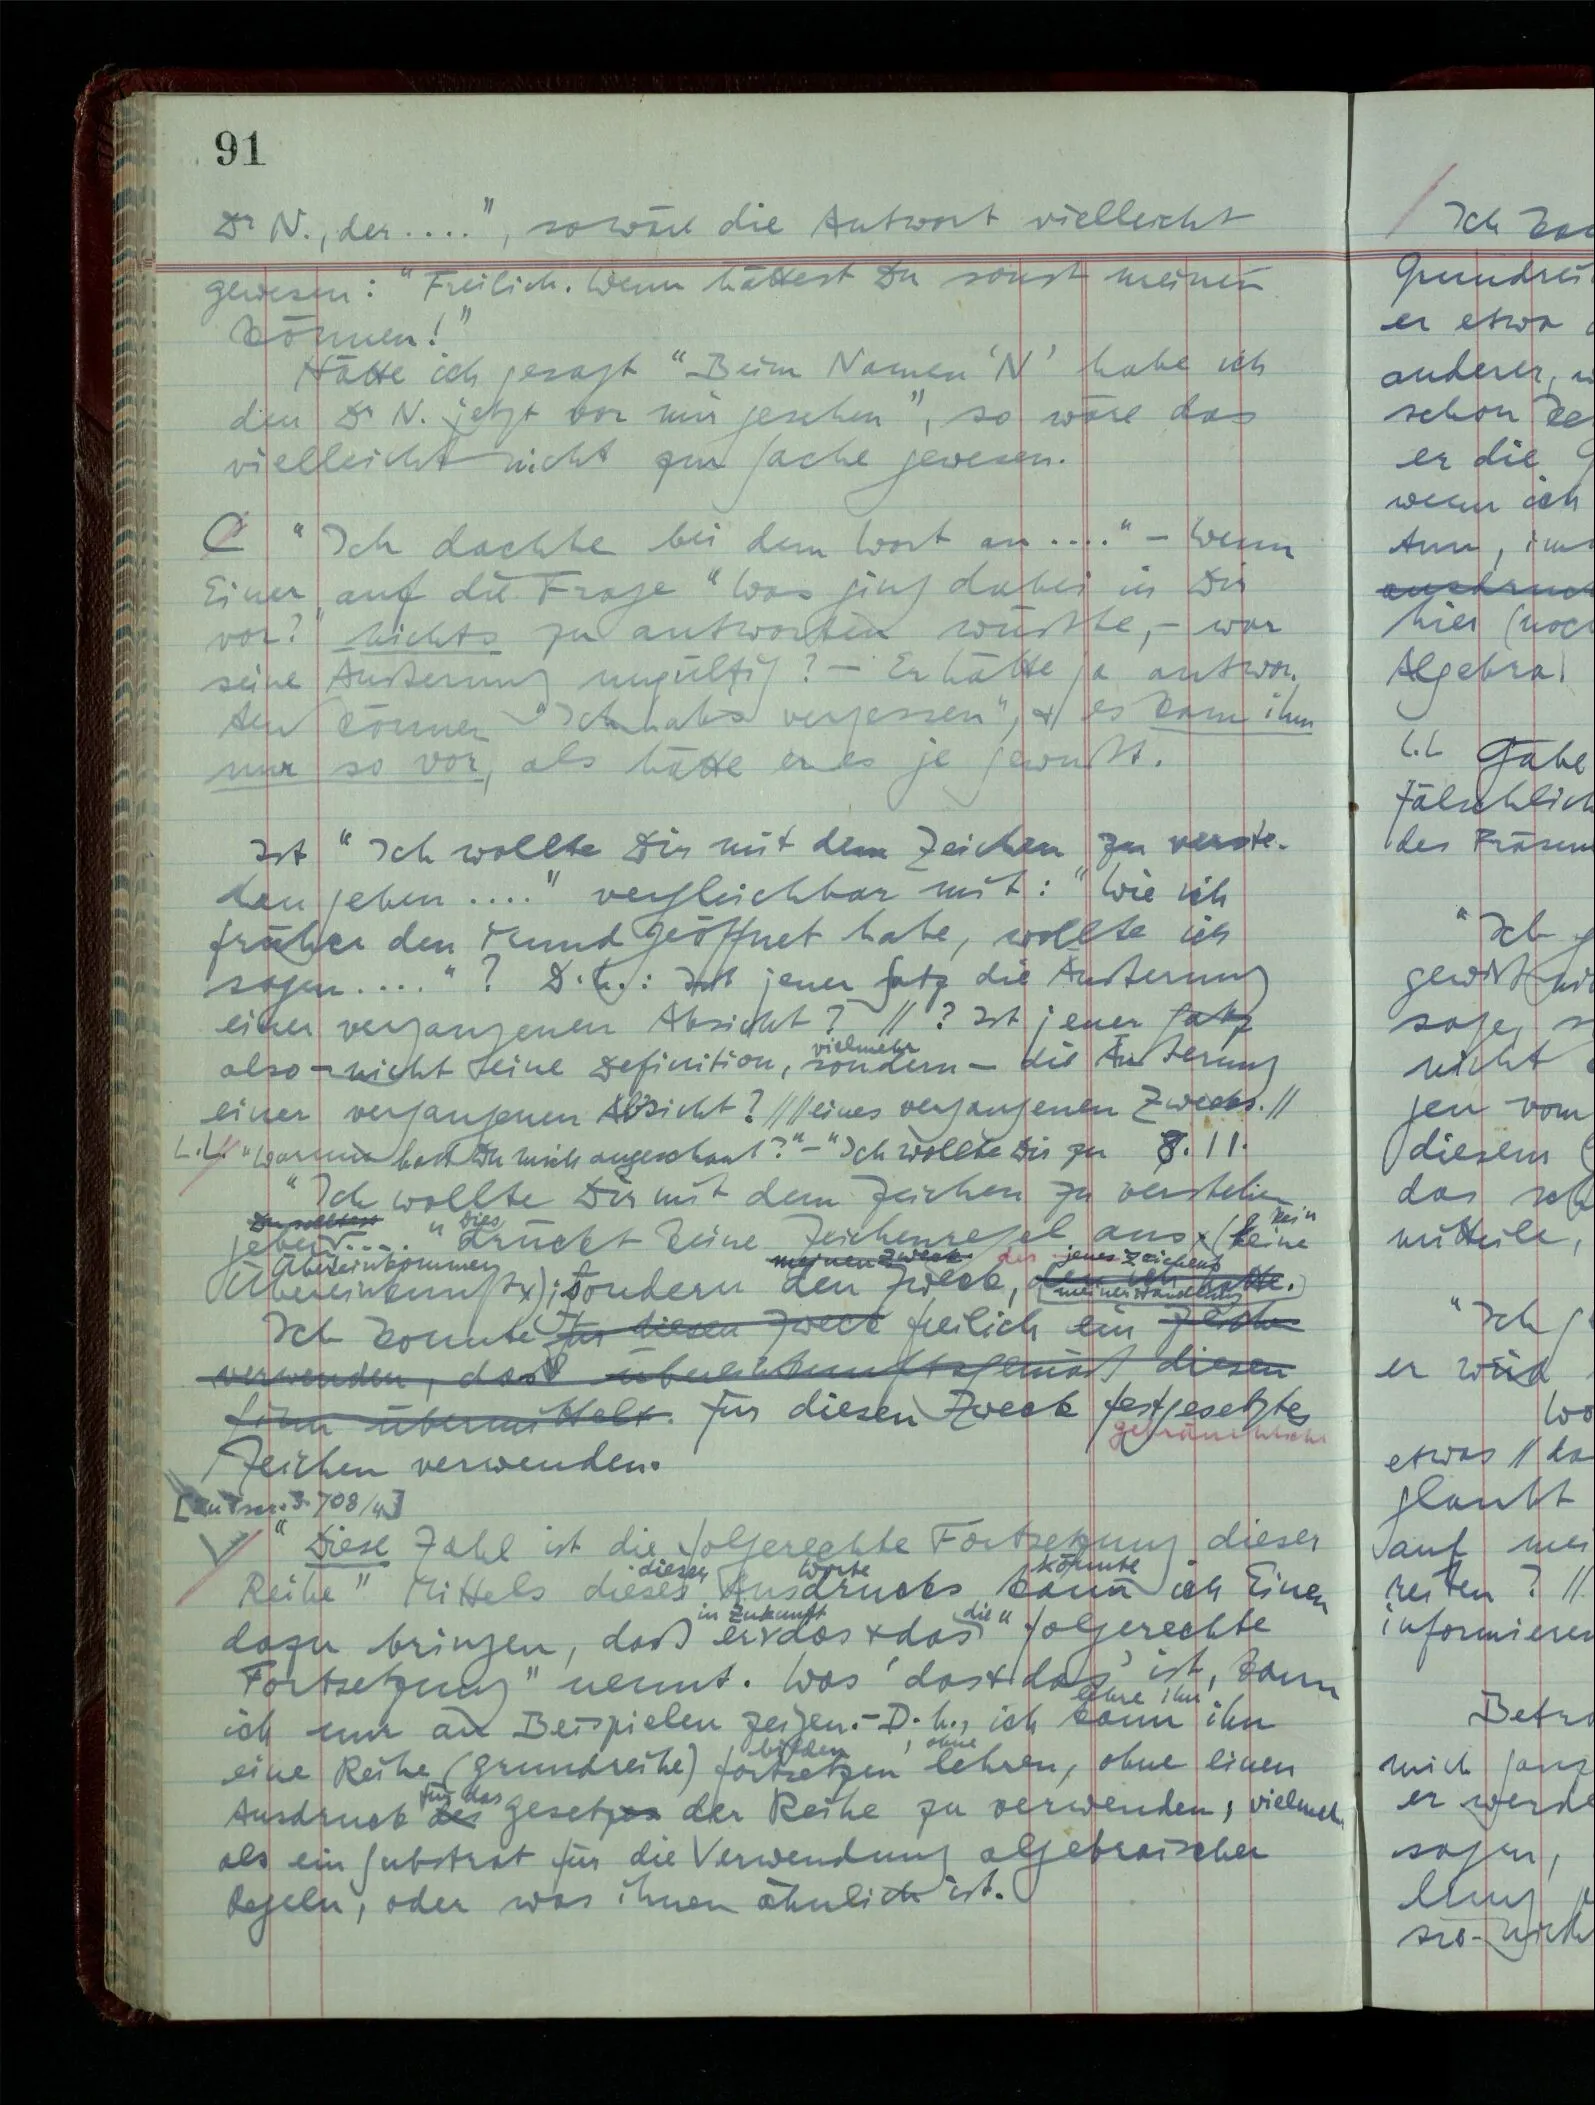 91
Dr N., der ....", so wäre die Antwort vielleicht
gewesen: "Freilich. Wenn hättest Du sonst meinen
können!"
Hätte ich gesagt "Beim Namen 'N' habe ich
den Dr N. jetzt vor mir gesehen", so wäre das
vielleicht nicht zur Sache gewesen.
C "Ich dachte bei dem Wort an ...." – Wenn
Einer auf die Frage "Was ging dabei in Dir
vor?" nichts zu antworten wüßte, – war
seine Äußerung ungültig? – Er hätte ja antwor-
ten können "Ich habs vergessen", & es kam ihm
nur so vor, als hätte er es je gewußt.
Ist "Ich wollte Dir mit dem Zeichen zu verste-
hen geben ...." vergleichbar mit: "Wie ich
früher den Mund geöffnet habe, wollte ich
sagen ...."? D.h.: Ist jener Satz die Äußerung
einer vergangenen Absicht? // ? Ist jener Satz
vielmehr
also – nicht eine Definition, sondern – die Äußerung
einer vergangenen Absicht? // // eines vergangenen Zwecks. //
"Warum hast Du mich angeschaut?" – "Ich wollte Dir zu 8.11.
"Ich wollte Dir mit dem Zeichen zu verstehen
Du solltest Dies kein
geben ...." drückt keine Zeichenregel aus (keine
Übereinkommen meinen Zweck des jenes Zeichens
Übereinkunft); sondern den Zweck, den ich hatte.
meiner Handlung
Ich konnte für diesen Zweck freilich ein Zeichen
verwenden, das übereinkunftsgemäß diesen
Sinn übermittelt. für diesen Zweck festgesetztes
gebräuchliches
Zeichen verwenden.
[Zu S. 708/4]
"Diese Zahl ist die folgerechte Fortsetzung dieser
dieser Worte könnte
Reihe" Mittels dieses Ausdrucks kann ich Einen
in Zukunft die
dazu bringen, daß er das & das "folgerechte
Fortsetzung" nennt. Was 'das & das' ist, kann
lehre ihn
ich nur an Beispielen zeigen. – D.h., ich kann ihn
bilden , ohne
eine Reihe (Grundreihe) fortsetzen lehren, ohne einen
für das
Ausdruck des Gesetzes der Reihe zu verwenden; vielmehr
als ein Substrat für die Verwendung algebraischer
Regeln, oder was ihnen ähnlich ist.
Grundrei
er etwa
anderer,
schon
er die
wenn ich
hier (noch
Algebra
Gäbe
fälschlich
des
"Ich
sage,
nicht
gen vom
diesem
das
mitteile,
"Ich
er wird
etwas //
glaubt
auf
informieren
Betra
mich ganz
er werde
sagen,